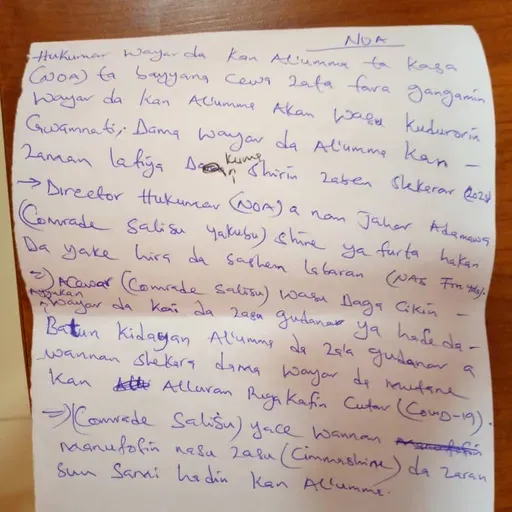 NOA
Hukumar wayar da kan Al'umma ta kasa
(NOA) ta bayyana cewa zata fara gangamin
wayar da kan Al'umma Akan wasu kudurorin
Gwamnati, Dama wayar da Al'umma kan -
zaman lafiya Dan kuma shirin zaben shekarar (2023)
→ Director Hukumar (NOA) a nan Jahar Adamawa
(Comrade Salisu Yakubu) Shine ya furta hakan
Da yake hira da sashem labaran (NAS FM
⇒) Acewar (Comrade Salisu) wasu Daga cikin -
Ayyukan
wayar da kai da zasu gudanar ya hade da -
Batun kidayan Al'umma da za'a gudanar a
wannan shekara dama wayar da mutane
kan Alluran Rugakafin Cutar (Covid-19).
⇒) (Comrade Salisu) yace wannan
manufofin nasu zasu (Cimmashine) da zaran
sun sami hadin kan Al'umma.